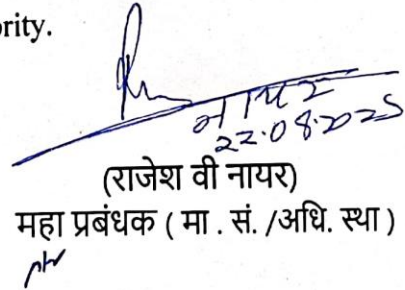 ority.
नायर
22.08.2025
(राजेश वी नायर)
महा प्रबंधक ( मा . सं. /अधि. स्था )